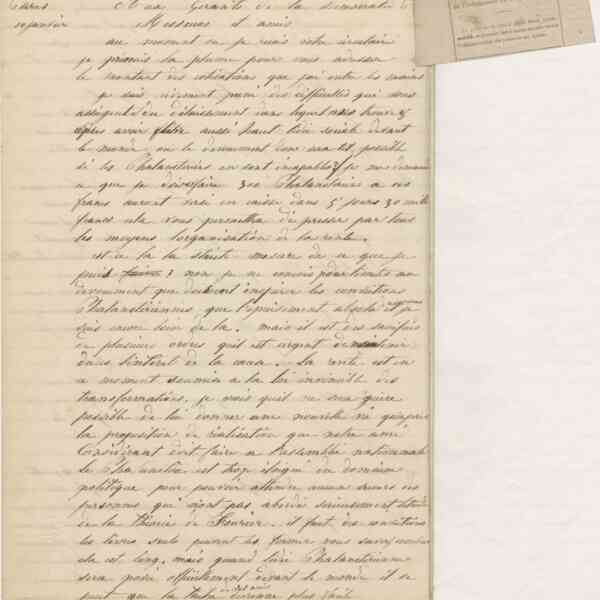 Aux Gérants de la démocratie
Messieurs et amis
au moment ou je reçois votre circulaire
je prenais la plume pour vous adresser
le montant des cotisations que j'ai entre les mains
je suis vivement peiné des difficultés qui vous
assiegent du délaissement dans lequel vous trouvez
après avoir porté aussi haut l'idée sociale devant
le monde, ou le dévouement donc sera til possible
si les Phalanstériens en sont incapables, je me demande
a que je dois faire 300 Phalanstériens a 100
francs auront versé en caisse dans 5 jours 30 mille
francs cela vous permettra de presser par tous
les moyens l'organisation de la rente.
est ce la la stricte mesure de ce que je
puis faire? non je ne conçois pour limite au
dévouement que doivent inspirer les convictions
Phalanstériennes, que l'épuisement absolu et je
suis encore loin de la. mais il est des sacrifices
de plusieurs ordres qu'il est urgent de
dans l'intérêt de la cause. La rente est en
ce moment soumise a la loi inévitable des
transformations, je crois qu'il ne sera guère
possible de lui donner une nouvelle vie qu'après
la proposition de réalisation que notre ami
Considerant doit faire a l'assemblée nationale
le Phalanstère est trop éloigné du domaine
politique pour pouvoir attendre aucun secours des
personnes qui n'ont pas abordé serieusement l'étude
de la théorie de Fourier. il faut des convictions
les livres seuls peuvent les former
cela est long, mais quand l'idée Phalanstérienne
sera posée officiellement devant le monde il se
peut que la tache devienne plus facile